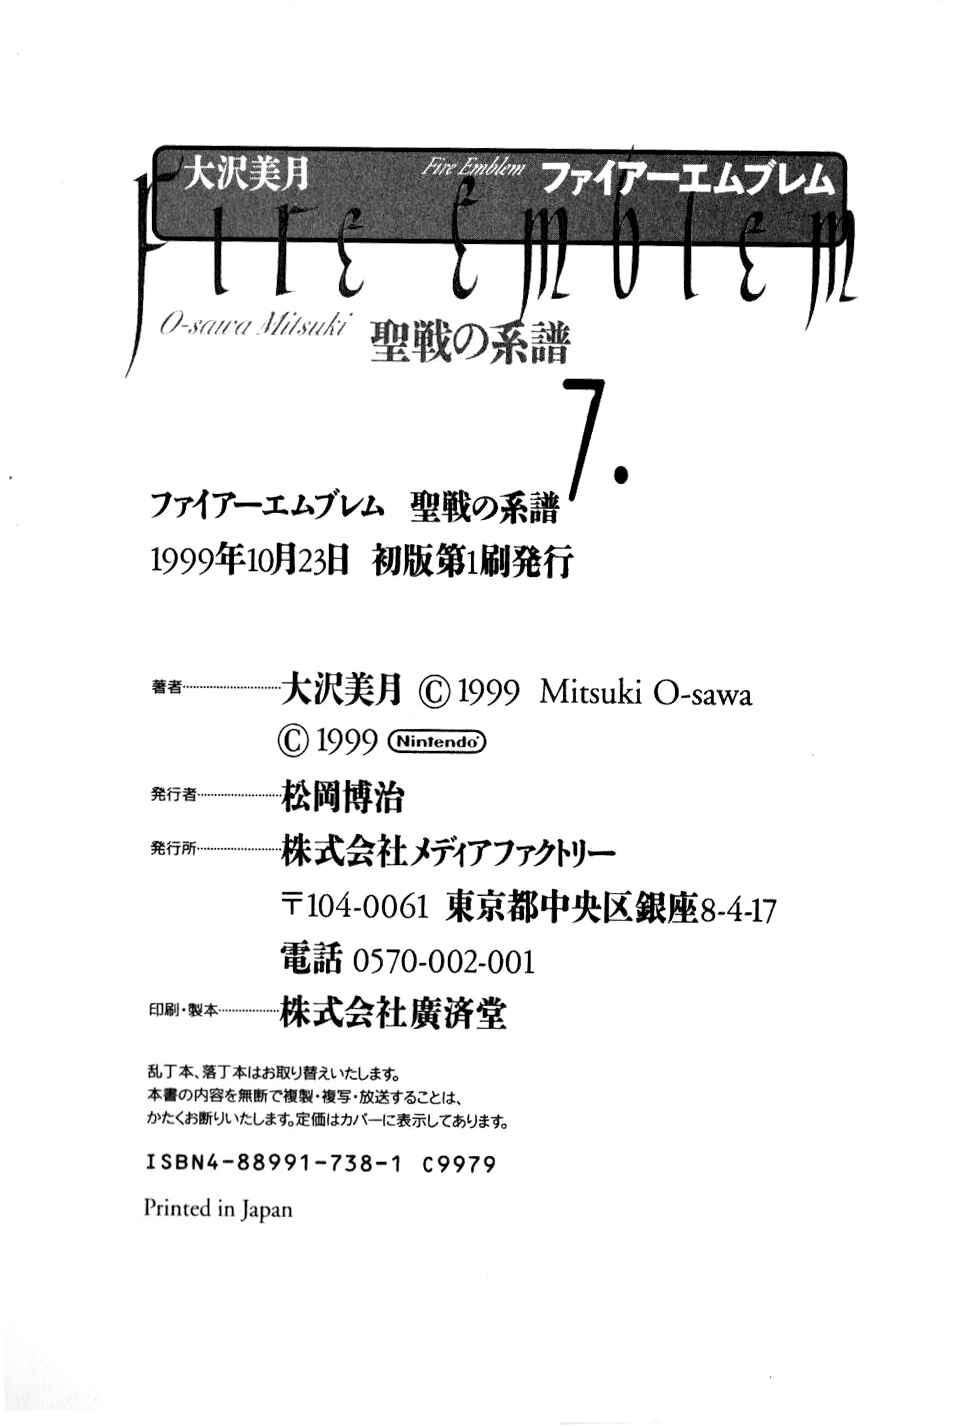 大沢美月 Fire Emblem ファイアーエムブレム
Fire Emblem
O-sawa Mitsuki 聖戦の系譜
7.
ファイアーエムブレム 聖戦の系譜
1999年10月23日 初版第1刷発行
著者……………………大沢美月 ©1999 Mitsuki O-sawa
©1999 Nintendo
発行者…………………松岡博治
発行所…………………株式会社メディアファクトリー
〒104-0061 東京都中央区銀座8-4-17
電話 0570-002-001
印刷・製本……………株式会社廣済堂
乱丁本、落丁本はお取り替えいたします。
本書の内容を無断で複製・複写・放送することは、
かたくお断りいたします。定価はカバーに表示してあります。
ISBN4-88991-738-1 C9979
Printed in Japan